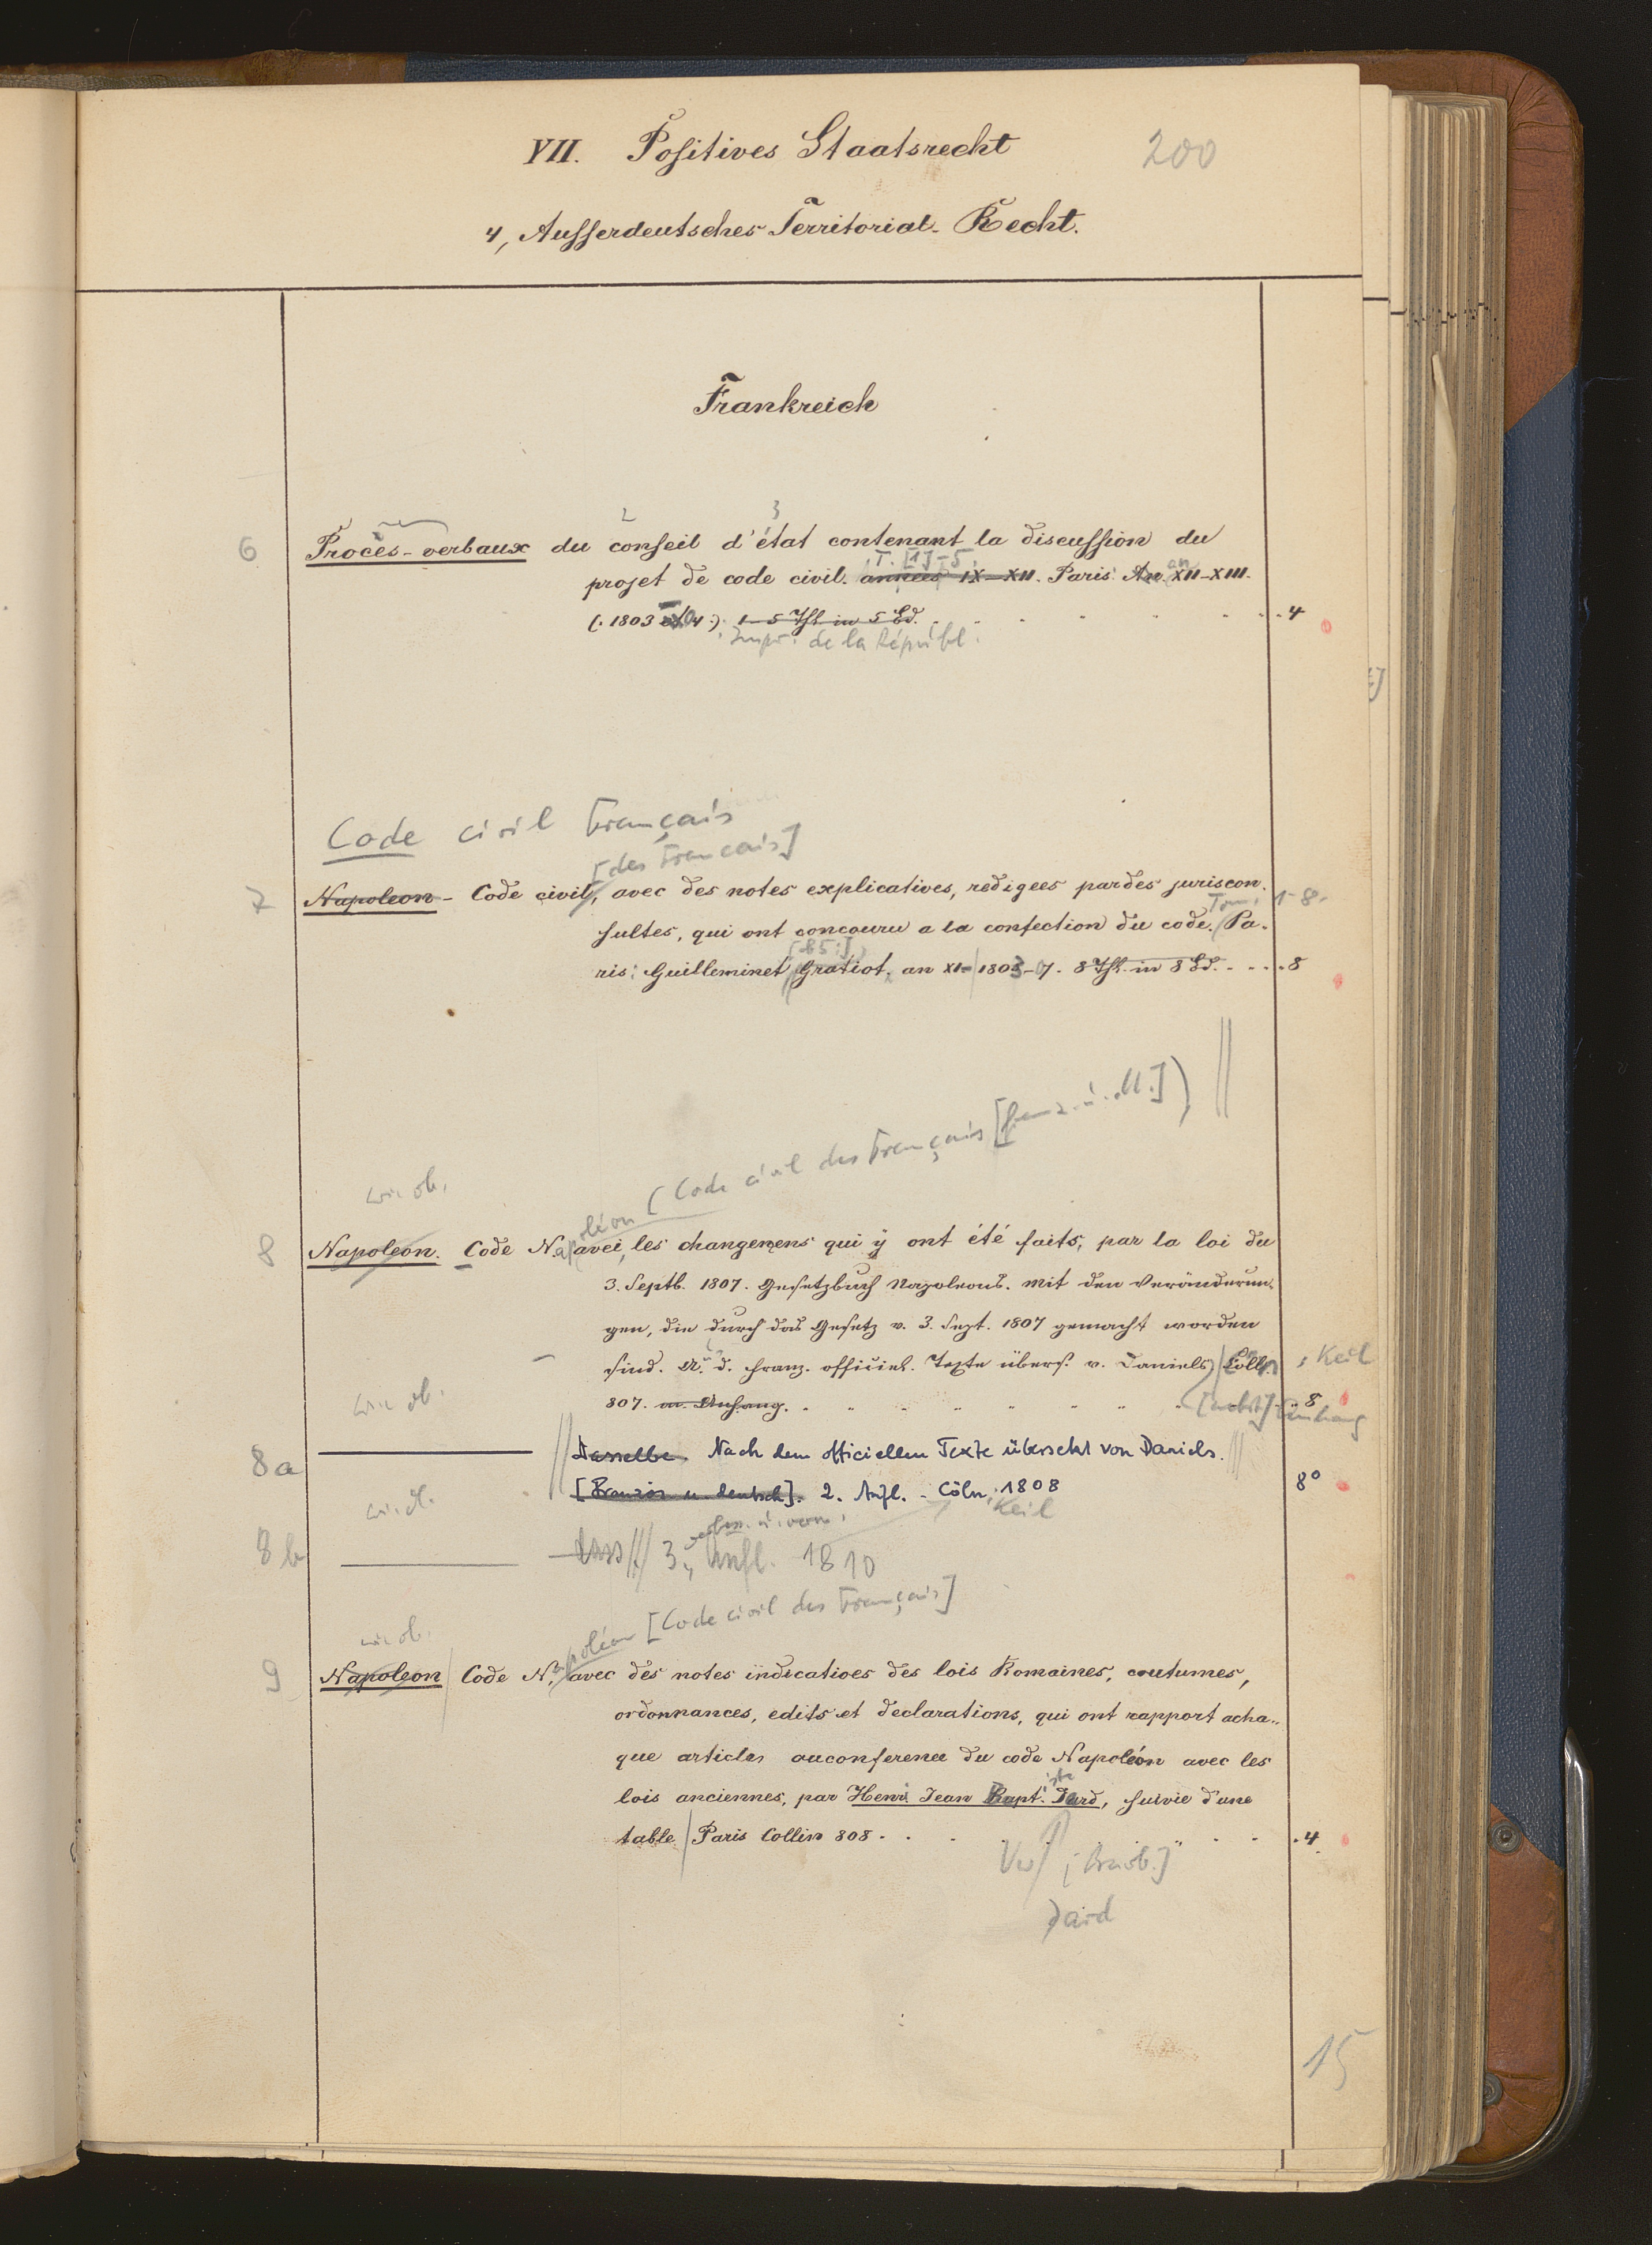 VII. Positives Staatsrecht 200
4, Ausserdeutsches Territorial-Recht.
Frankreich
2 3
6 Procès-verbaux du conseil d'état contenant la discussion du
T. [1]-5.
projet de code civil. années IX-XII. Paris: An. XII-XIII.
(: 1803 4 :). 1-5 Thl. in 5 Bd. 4
Impr. de la Républ.
Code civil français
[des Français]
7 Napoleon - Code civil, avec des notes explicatives, redigees par des juriscon.
Tom. 1-8.
sultes, qui ont concouru a la confection du code. Pa.
ris: Guilleminet Gratiot. an XI- 1803-7. 8 Thl. in 8 Bd. 8
(Code civil des Français [franz. u. dt.])
wie ob.
léon
8 Napoleon. Code Nap avec les changemens qui ÿ ont été faits, par la loi du
3. Septb. 1807. Gesetzbuch Napoleons. Mit den Veränderun.
gen, die durch das Gesetz v. 3. Sept. 1807 gemacht worden
sind. A. d. franz. officiel. Texte übers. v. Daniels Cölln : Keil
807. m. Anhang. [nebst] Anhang 8
wie ob.
8a Dasselbe. Nach dem officiellen Texte übersetzt von Daniels.
[Französ u. deutsch]. 2. Aufl. - Cöln, 1808 8°
Keil
wie ob.
verbess. u. verm.
8b Dass. 3. Aufl. 1810
poléon [Code civil des Français]
wie ob.
9 Napoleon Code N. avec des notes indicatives des lois Romaines, coutumes,
ordonnances, edits et declarations, qui ont rapport acha„
que articles ou conference du code Napoléon avec les
iste
lois anciennes, par Henri Jean Bapt. Dard, suivie d'une
table Paris Collin 808. 4.
Dard
15